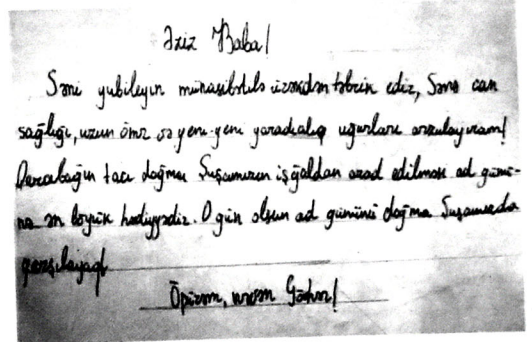 Əziz Baba!
Səni yubileyin münasibətilə ürəkdən təbrik edir, Sənə can
sağlığı, uzun ömr və yeni-yeni yaradıcılıq uğurları arzulayıram!
Qarabağın tacı doğma Şuşamızın işğaldan azad edilməsi ad günü-
nə ən böyük hədiyyədir. O gün olsun ad gününü doğma Şuşamızda
qarşılayaq!
Öpürəm, nəvən Gövhər!